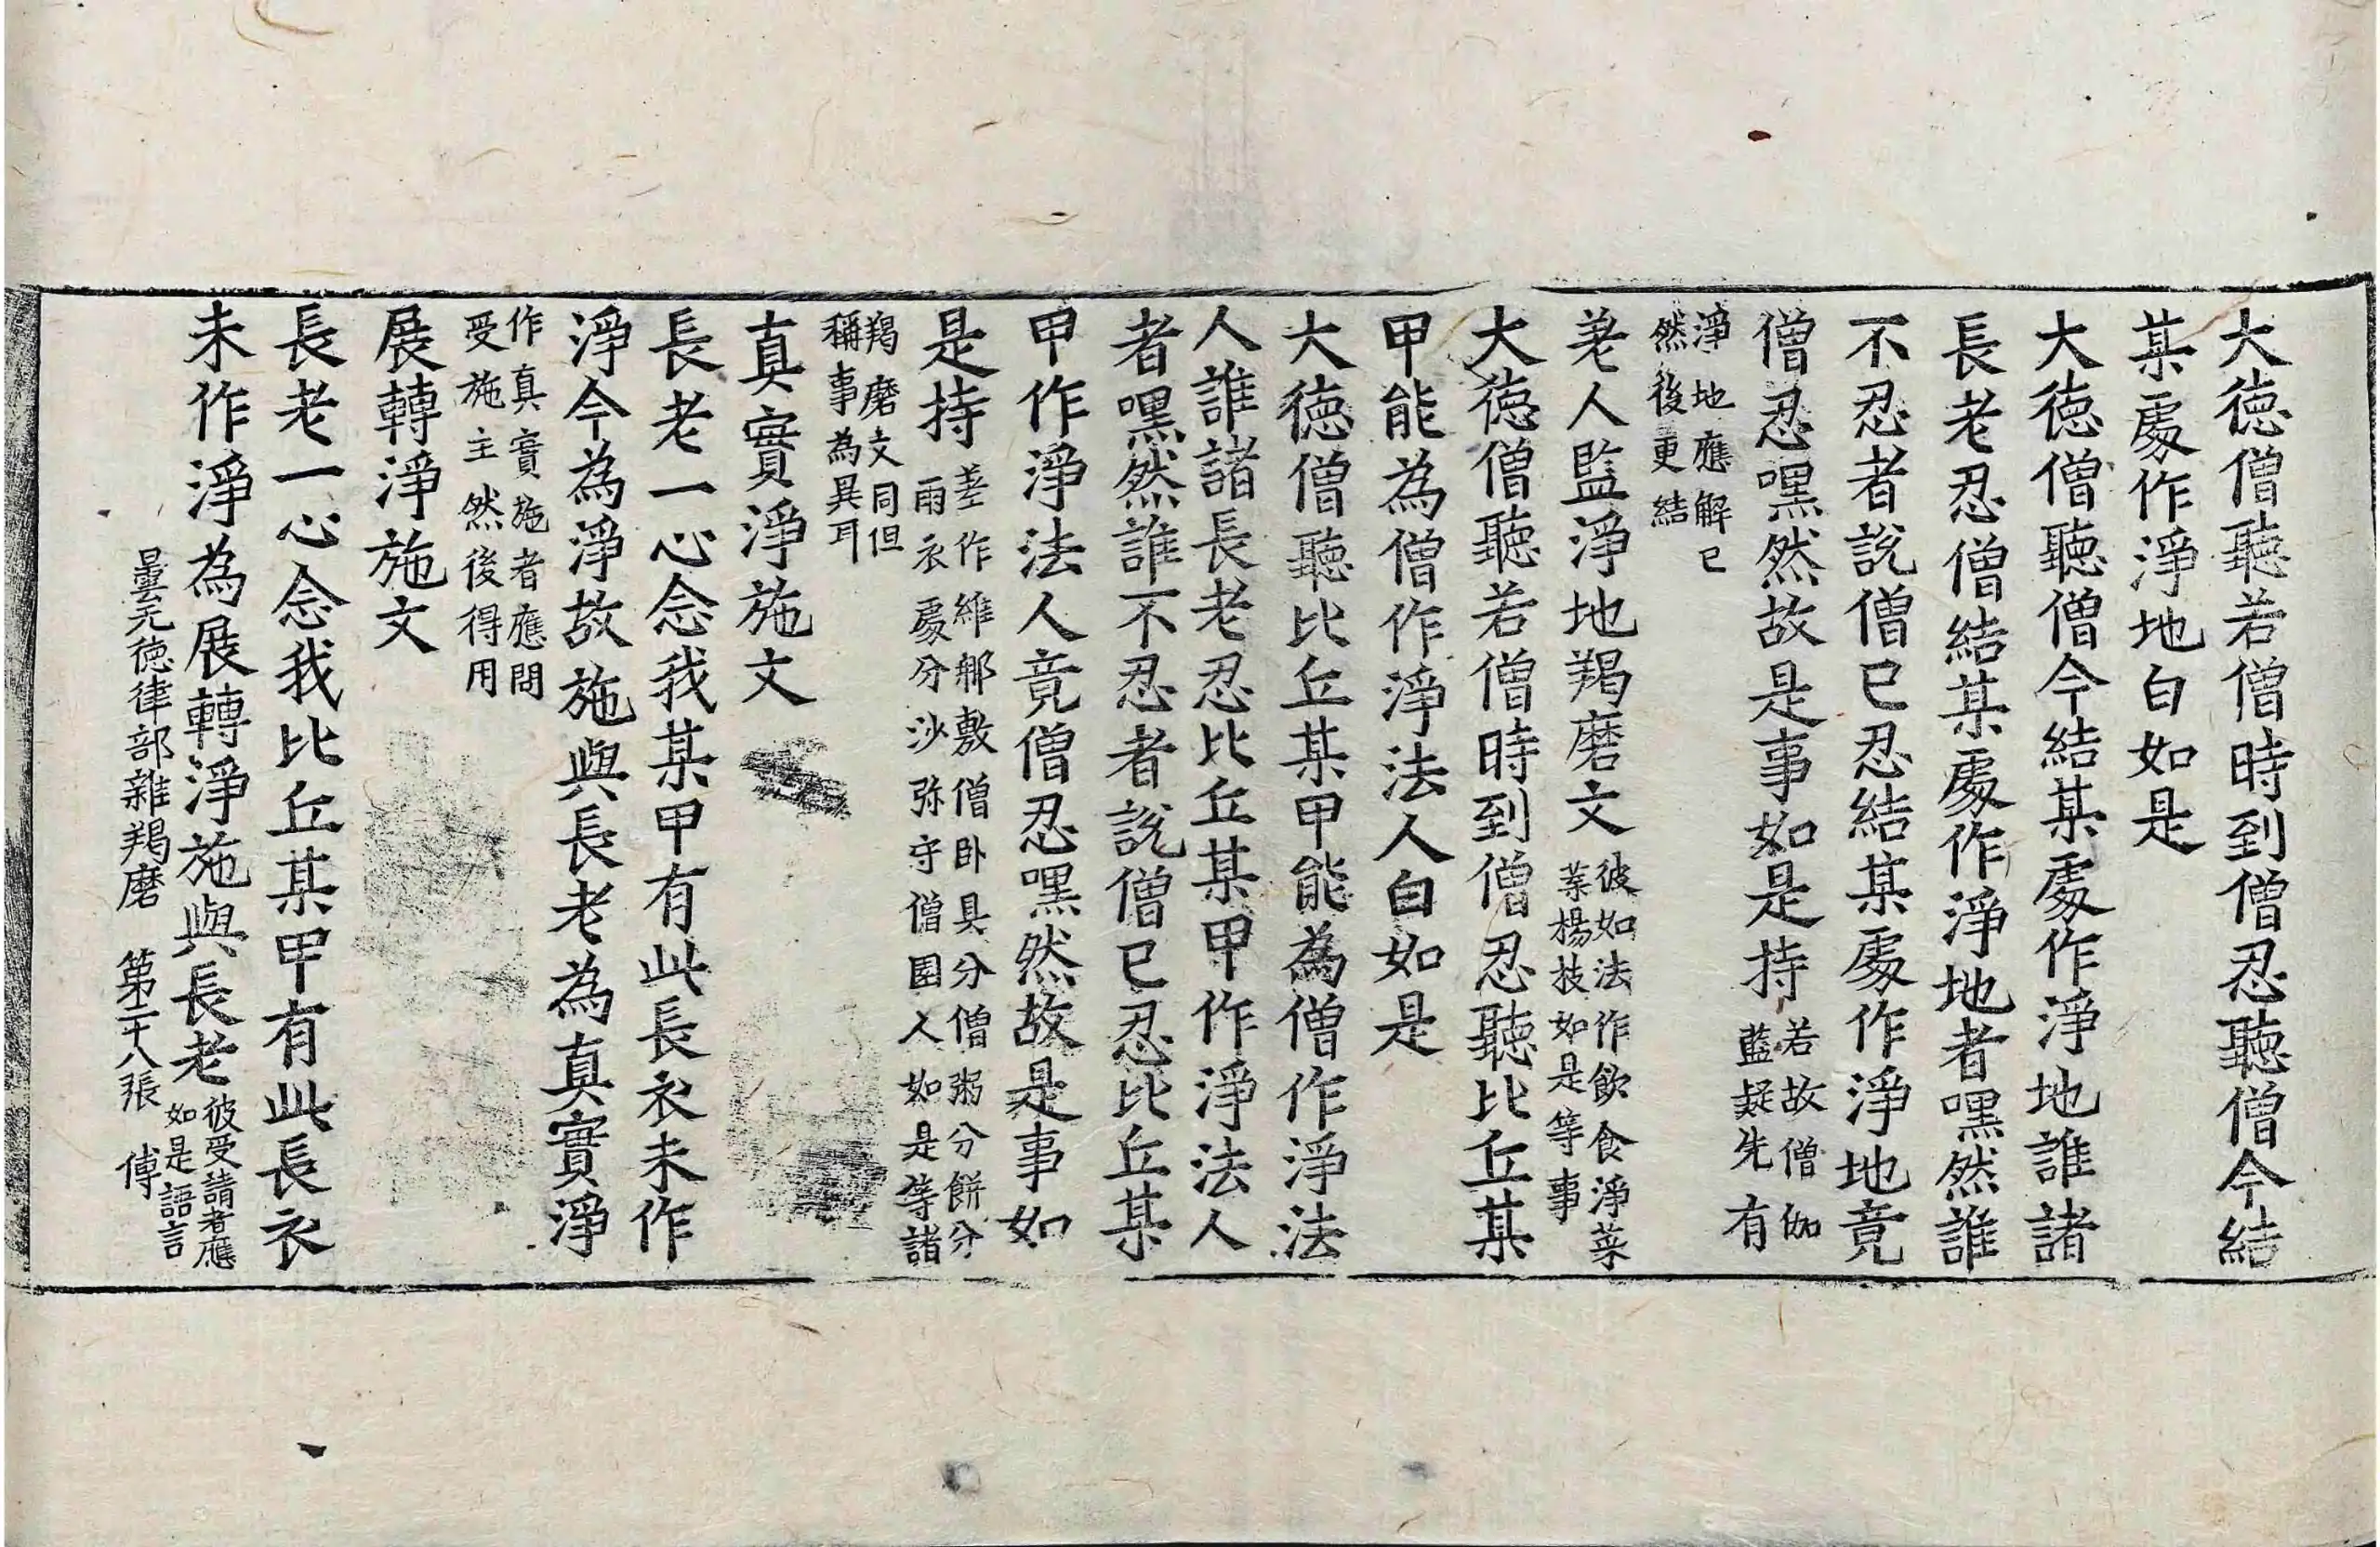 大德僧聽若僧時到僧忍聽僧今結
某處作淨地白如是
大德僧聽僧今結某處作淨地誰諸
長老忍僧結某處作淨地者嘿然誰
不忍者說僧已忍結某處作淨地竟
僧忍嘿然故是事如是持若故僧伽
藍疑先有
淨地應解已
然後更結
差人監淨地羯磨文彼如法作飲食淨菜
菜楊枝如是等事
大德僧聽若僧時到僧忍聽比丘某
甲能為僧作淨法人白如是
大德僧聽比丘某甲能為僧作淨法
人誰諸長老忍比丘某甲作淨法人
者嘿然誰不忍者說僧已忍比丘某
甲作淨法人竟僧忍嘿然故是事如
是持差作維那敷僧卧具分僧粥分餅分
雨衣處分沙弥守僧園人如是等諸
羯磨文同但
稱事為異耳
真實淨施文
長老一心念我某甲有此長衣未作
淨今為淨故施與長老為真實淨
作真實施者應問
受施主然後得用
展轉淨施文
長老一心念我比丘某甲有此長衣
未作淨為展轉淨施與長老彼受請者應
如是語言
曇无德律部雜羯磨 第二十八張 傅